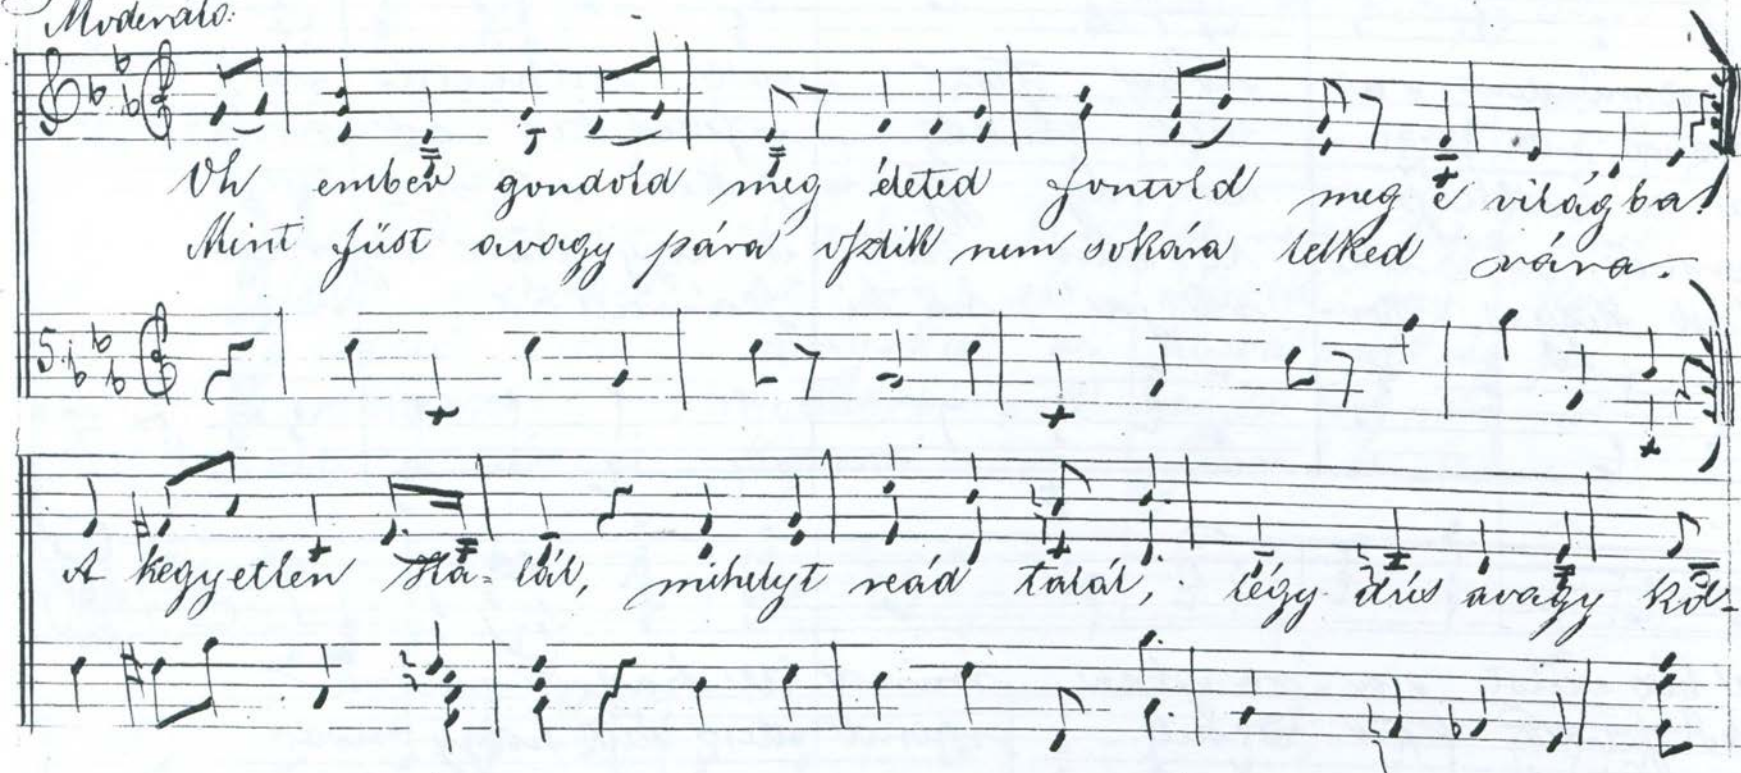 Moderato:
Oh ember gondold meg életed fontold meg é világba!
Mint füst avagy pára oszlik nem sokára lelked rára.
A kegyetlen Ha-lál, mihelyt reád talál, légy dús avagy kól-